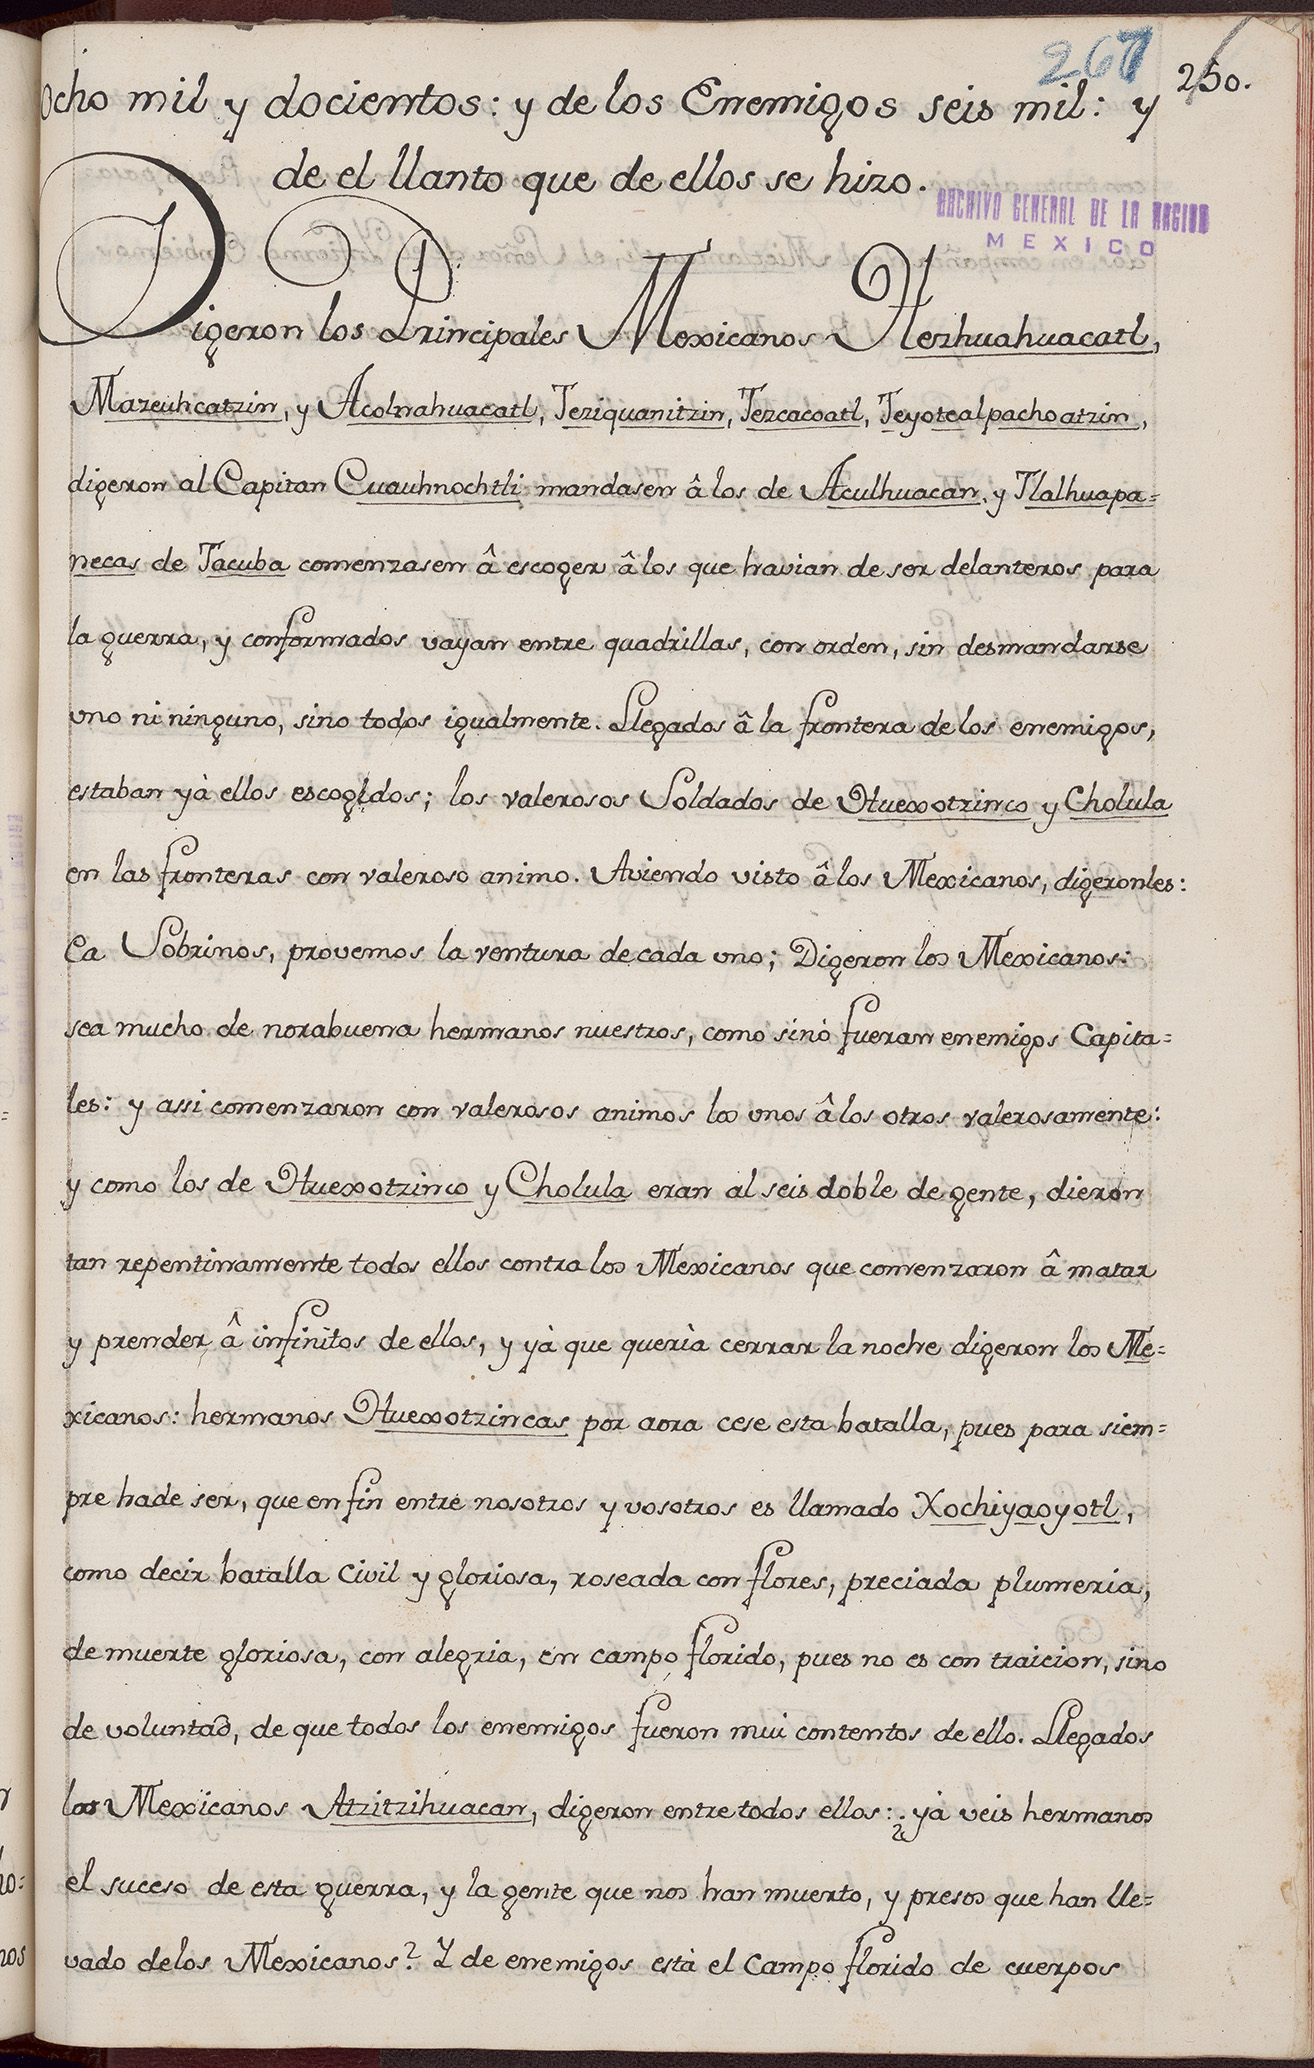 267 250.
ocho mil y docientos: y de los Enemigos seis mil: y
de el llanto que de ellos se hizo.
ARCHIVO GENERAL DE LA NACION
MEXICO
Digeron los Principales Mexicanos Hezhuahuacatl,
Mazeuhcatzin, y Acolnahuacatl, Teziquanitzin, Tezcacoatl, Teyotcalpachoatzin,
digeron al Capitan Cuauhnochtli mandasen â los de Aculhuacan, y Tlalhuapa=
necas de Tacuba comenzasen â escoger â los que havian de ser delanteros para
la guerra, y conformados vayan entre quadrillas, con orden, sin desmandarse
uno ni ninguno, sino todos igualmente. Llegados â la frontera de los enemigos,
estaban yà ellos escogidos; los valerosos Soldados de Huexotzinco y Cholula
en las fronteras con valeroso animo. Aviendo visto â los Mexicanos, digeronles:
Ea Sobrinos, provemos la ventura de cada uno; Digeron los Mexicanos:
sea mucho de norabuena hermanos nuestros, como sinò fueran enemigos Capita=
les: y assi comenzaron con valerosos animos los unos â los otros valerosamente:
y como los de Huexotzinco y Cholula eran al seis doble de gente, dieron
tan repentinamente todos ellos contra los Mexicanos que comenzaron â matar
y prender â infinitos de ellos, y yà que querìa cerrar la noche digeron los Me=
xicanos: hermanos Huexotzincas por aora cese esta batalla, pues para siem=
pre hade ser, que en fin entre nosotros y vosotros es llamado Xochiyaoyotl,
como decir batalla civil y gloriosa, roseada con flores, preciada plumeria,
de muerte gloriosa, con alegria, en campo florido, pues no es con traicion, sino
de voluntad, de que todos los enemigos fueron mui contentos de ello. Llegados
los Mexicanos Atzitzihuacan, digeron entre todos ellos: ¿yà veis hermanos
el suceso de esta guerra, y la gente que nos han muerto, y presos que han lle=
vado delos Mexicanos? Y de enemigos està el Campo florido de cuerpos